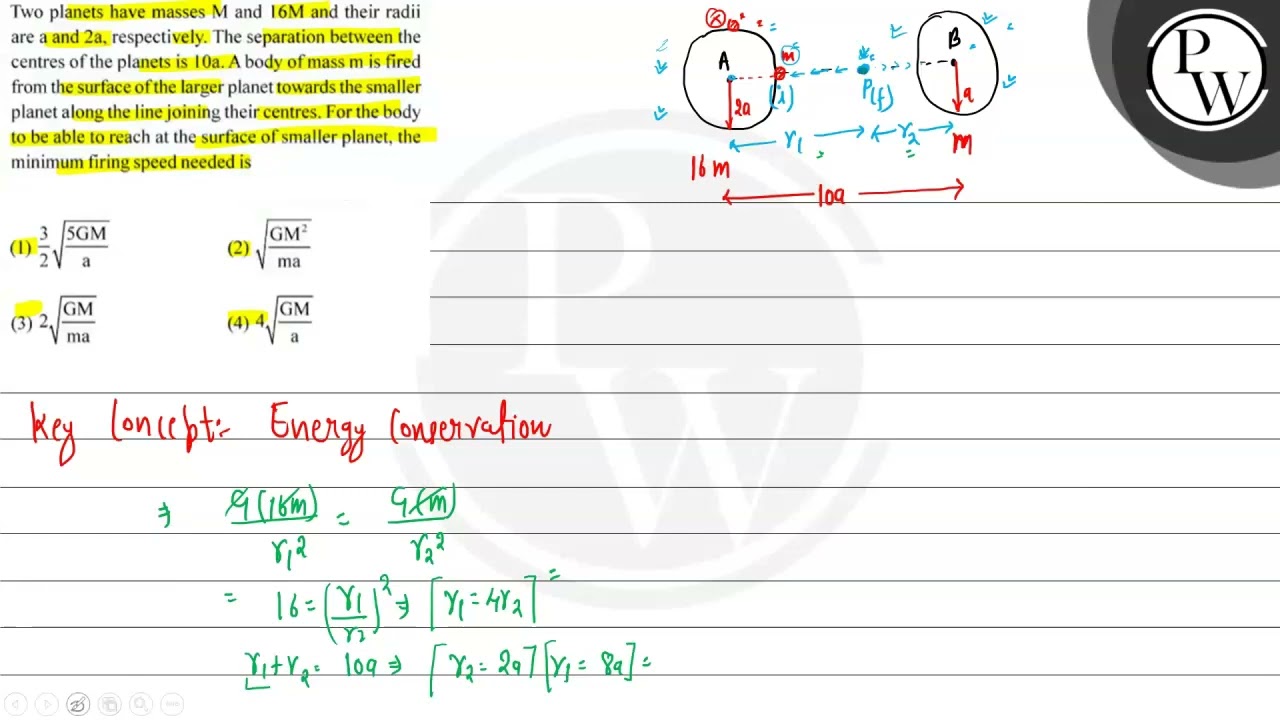 Two planets have masses M and 16M and their radii
are a and 2a, respectively. The separation between the
centres of the planets is 10a. A body of mass m is fired
from the surface of the larger planet towards the smaller
planet along the line joining their centres. For the body
to be able to reach at the surface of smaller planet, the
minimum firing speed needed is
(1) 3/2 √(5GM/a)
(2) √(GM²/ma)
(3) 2√(GM/ma)
(4) 4√(GM/a)
A
B
m
2a
(i)
P(f)
a
r₁
r₂
16m
m
10a
PW
Key Concept:- Energy Conservation
⇒ G(16m)/r₁² = G(m)/r₂²
= 16 = (r₁/r₂)² ⇒ [r₁ = 4r₂] =
r₁ + r₂ = 10a ⇒ [r₂ = 2a] [r₁ = 8a] =
PW